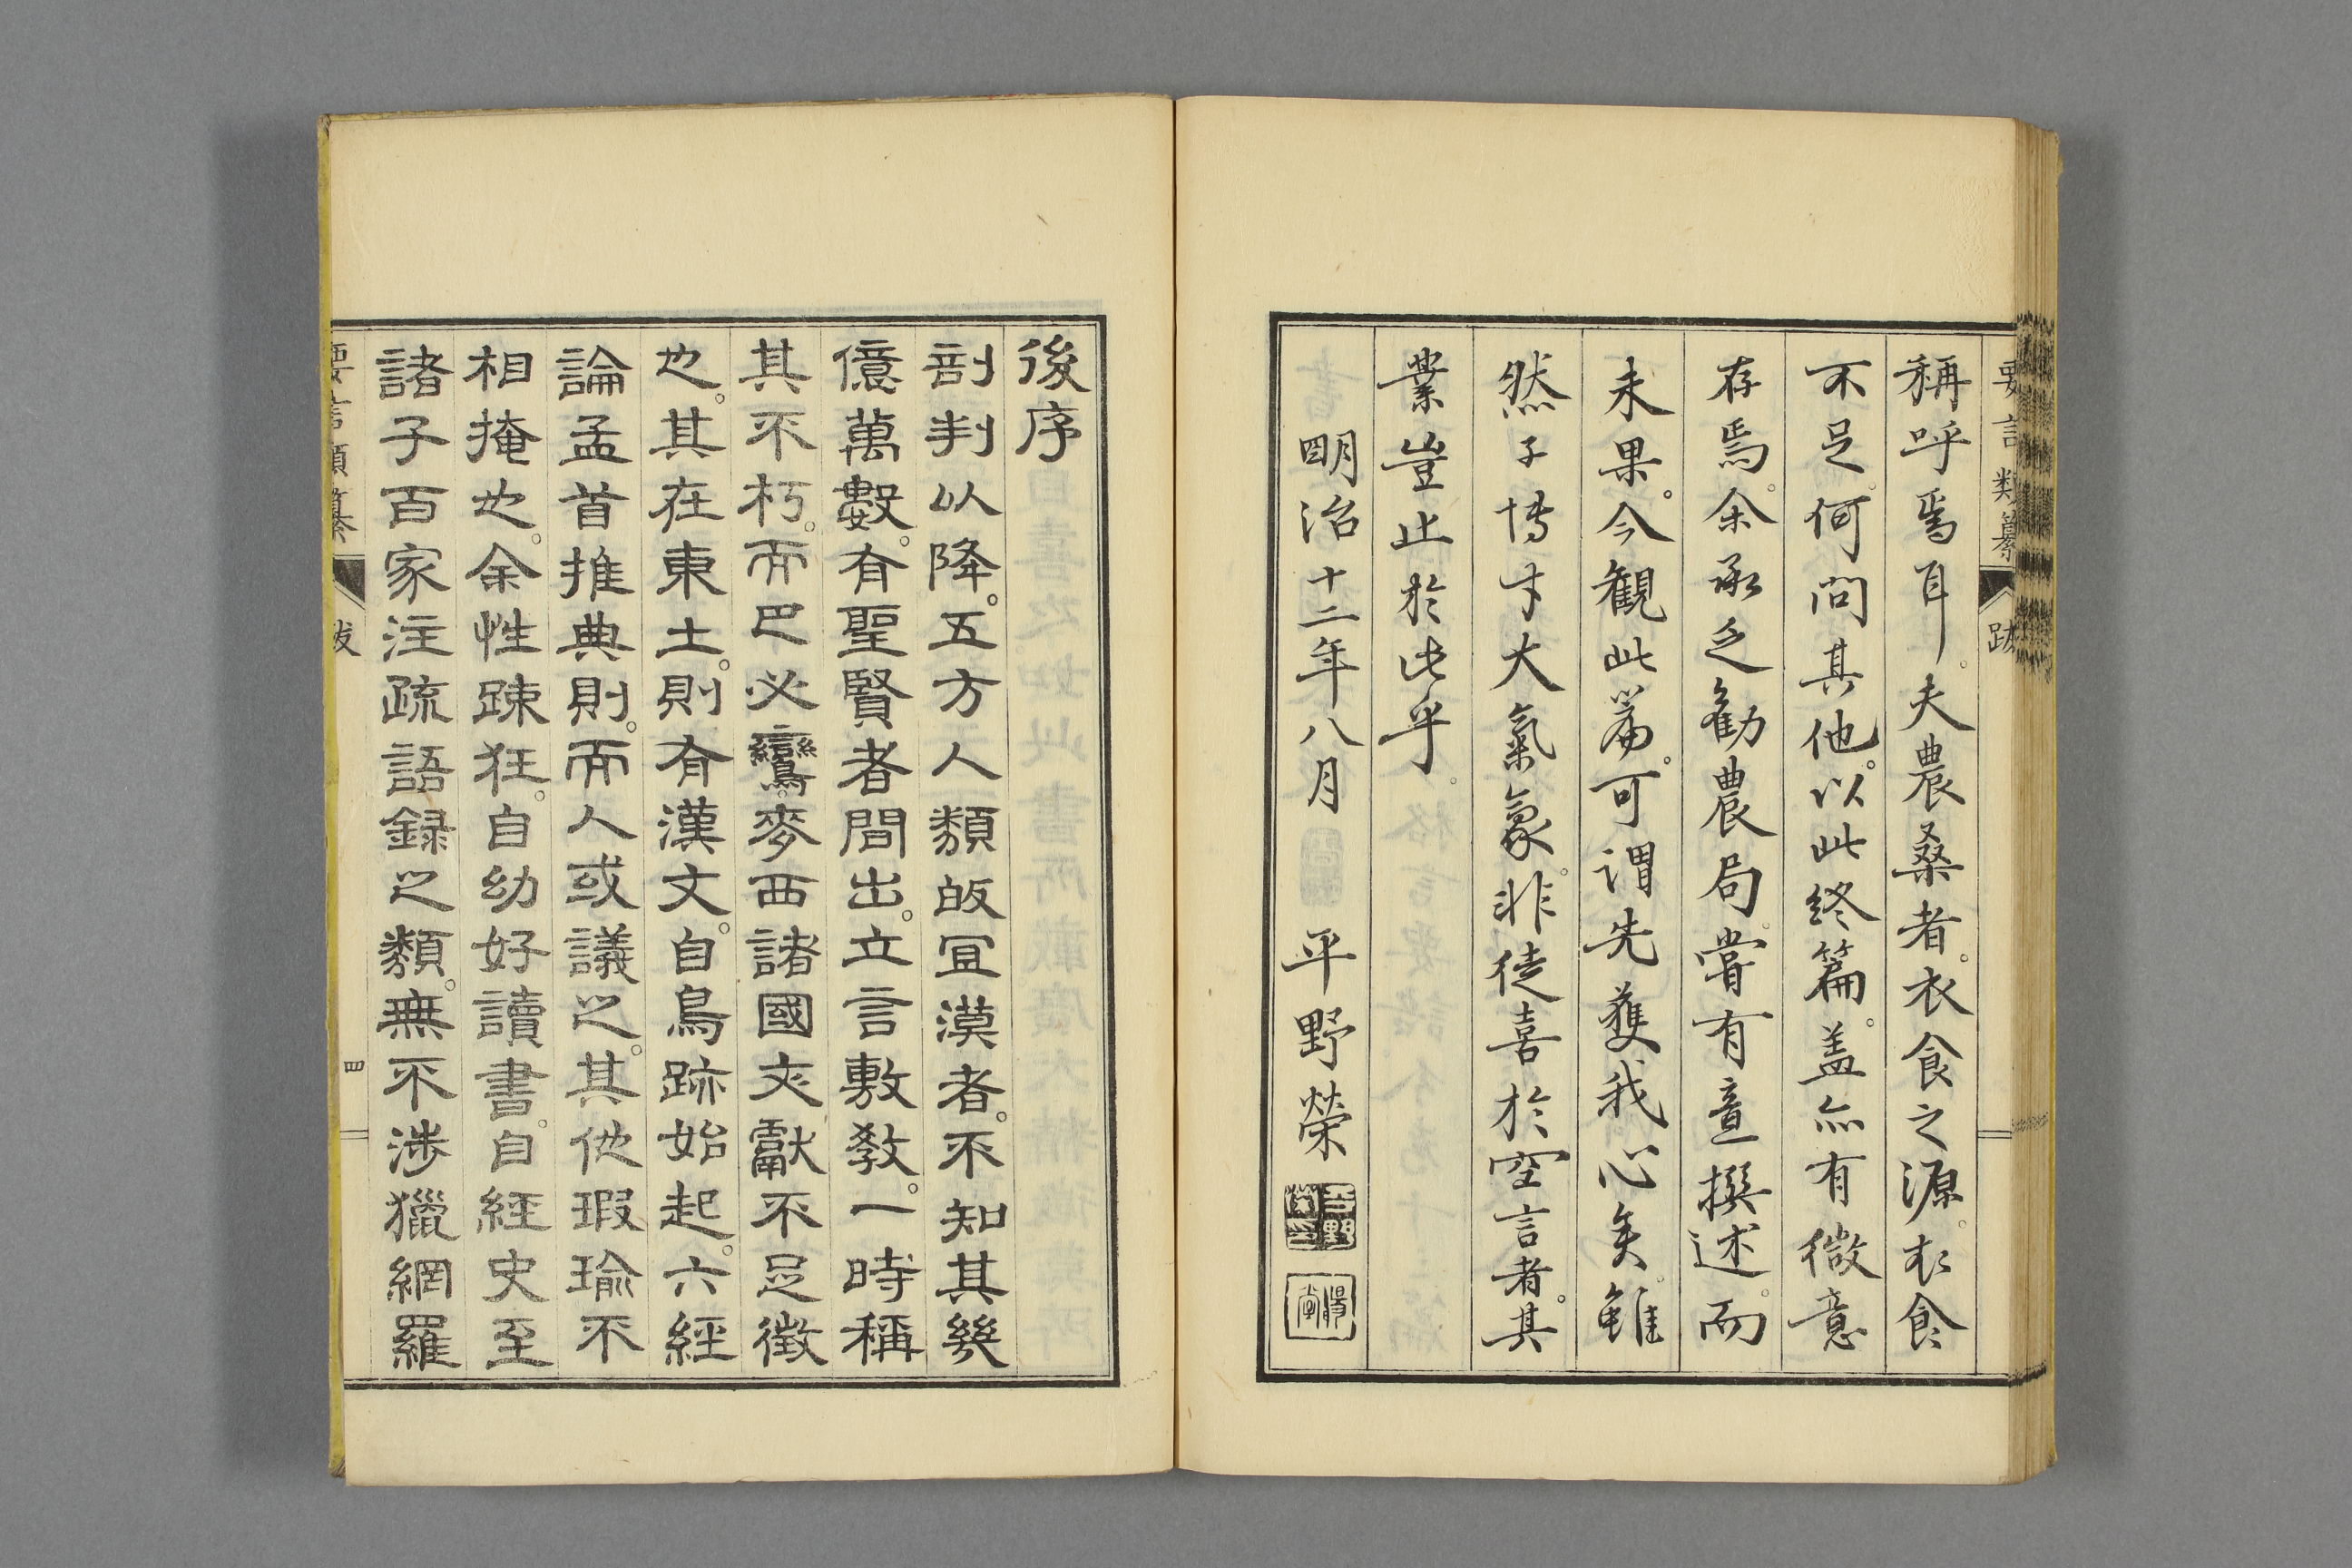 要言類纂 跋
稱呼焉耳。夫農桑者。衣食之源。衣食
不足。何問其他。以此終篇。盖亦有微意
存焉。余承乏勸農局。嘗有意撰述。而
未果。今観此篇。可謂先獲我心矣。雖
然子博才大氣象。非徒喜於空言者。其
業豈止於此乎。
明治十二年八月 平野榮
後序
剖判以降。五方人類皈冝漠者。不知其幾
億萬數。有聖賢者間出。立言敷教。一時稱
其不朽。而巴必鸞。麥西諸國文獻不足徵
也。其在東土。則有漢文。自鳥跡始起。六經
論孟首推典則。而人或議之。其他瑕瑜不
相掩也。余性踈狂。自幼好讀書。自経史至
諸子百家注疏語録之類。無不渉獵網羅
要言類纂 跋 四